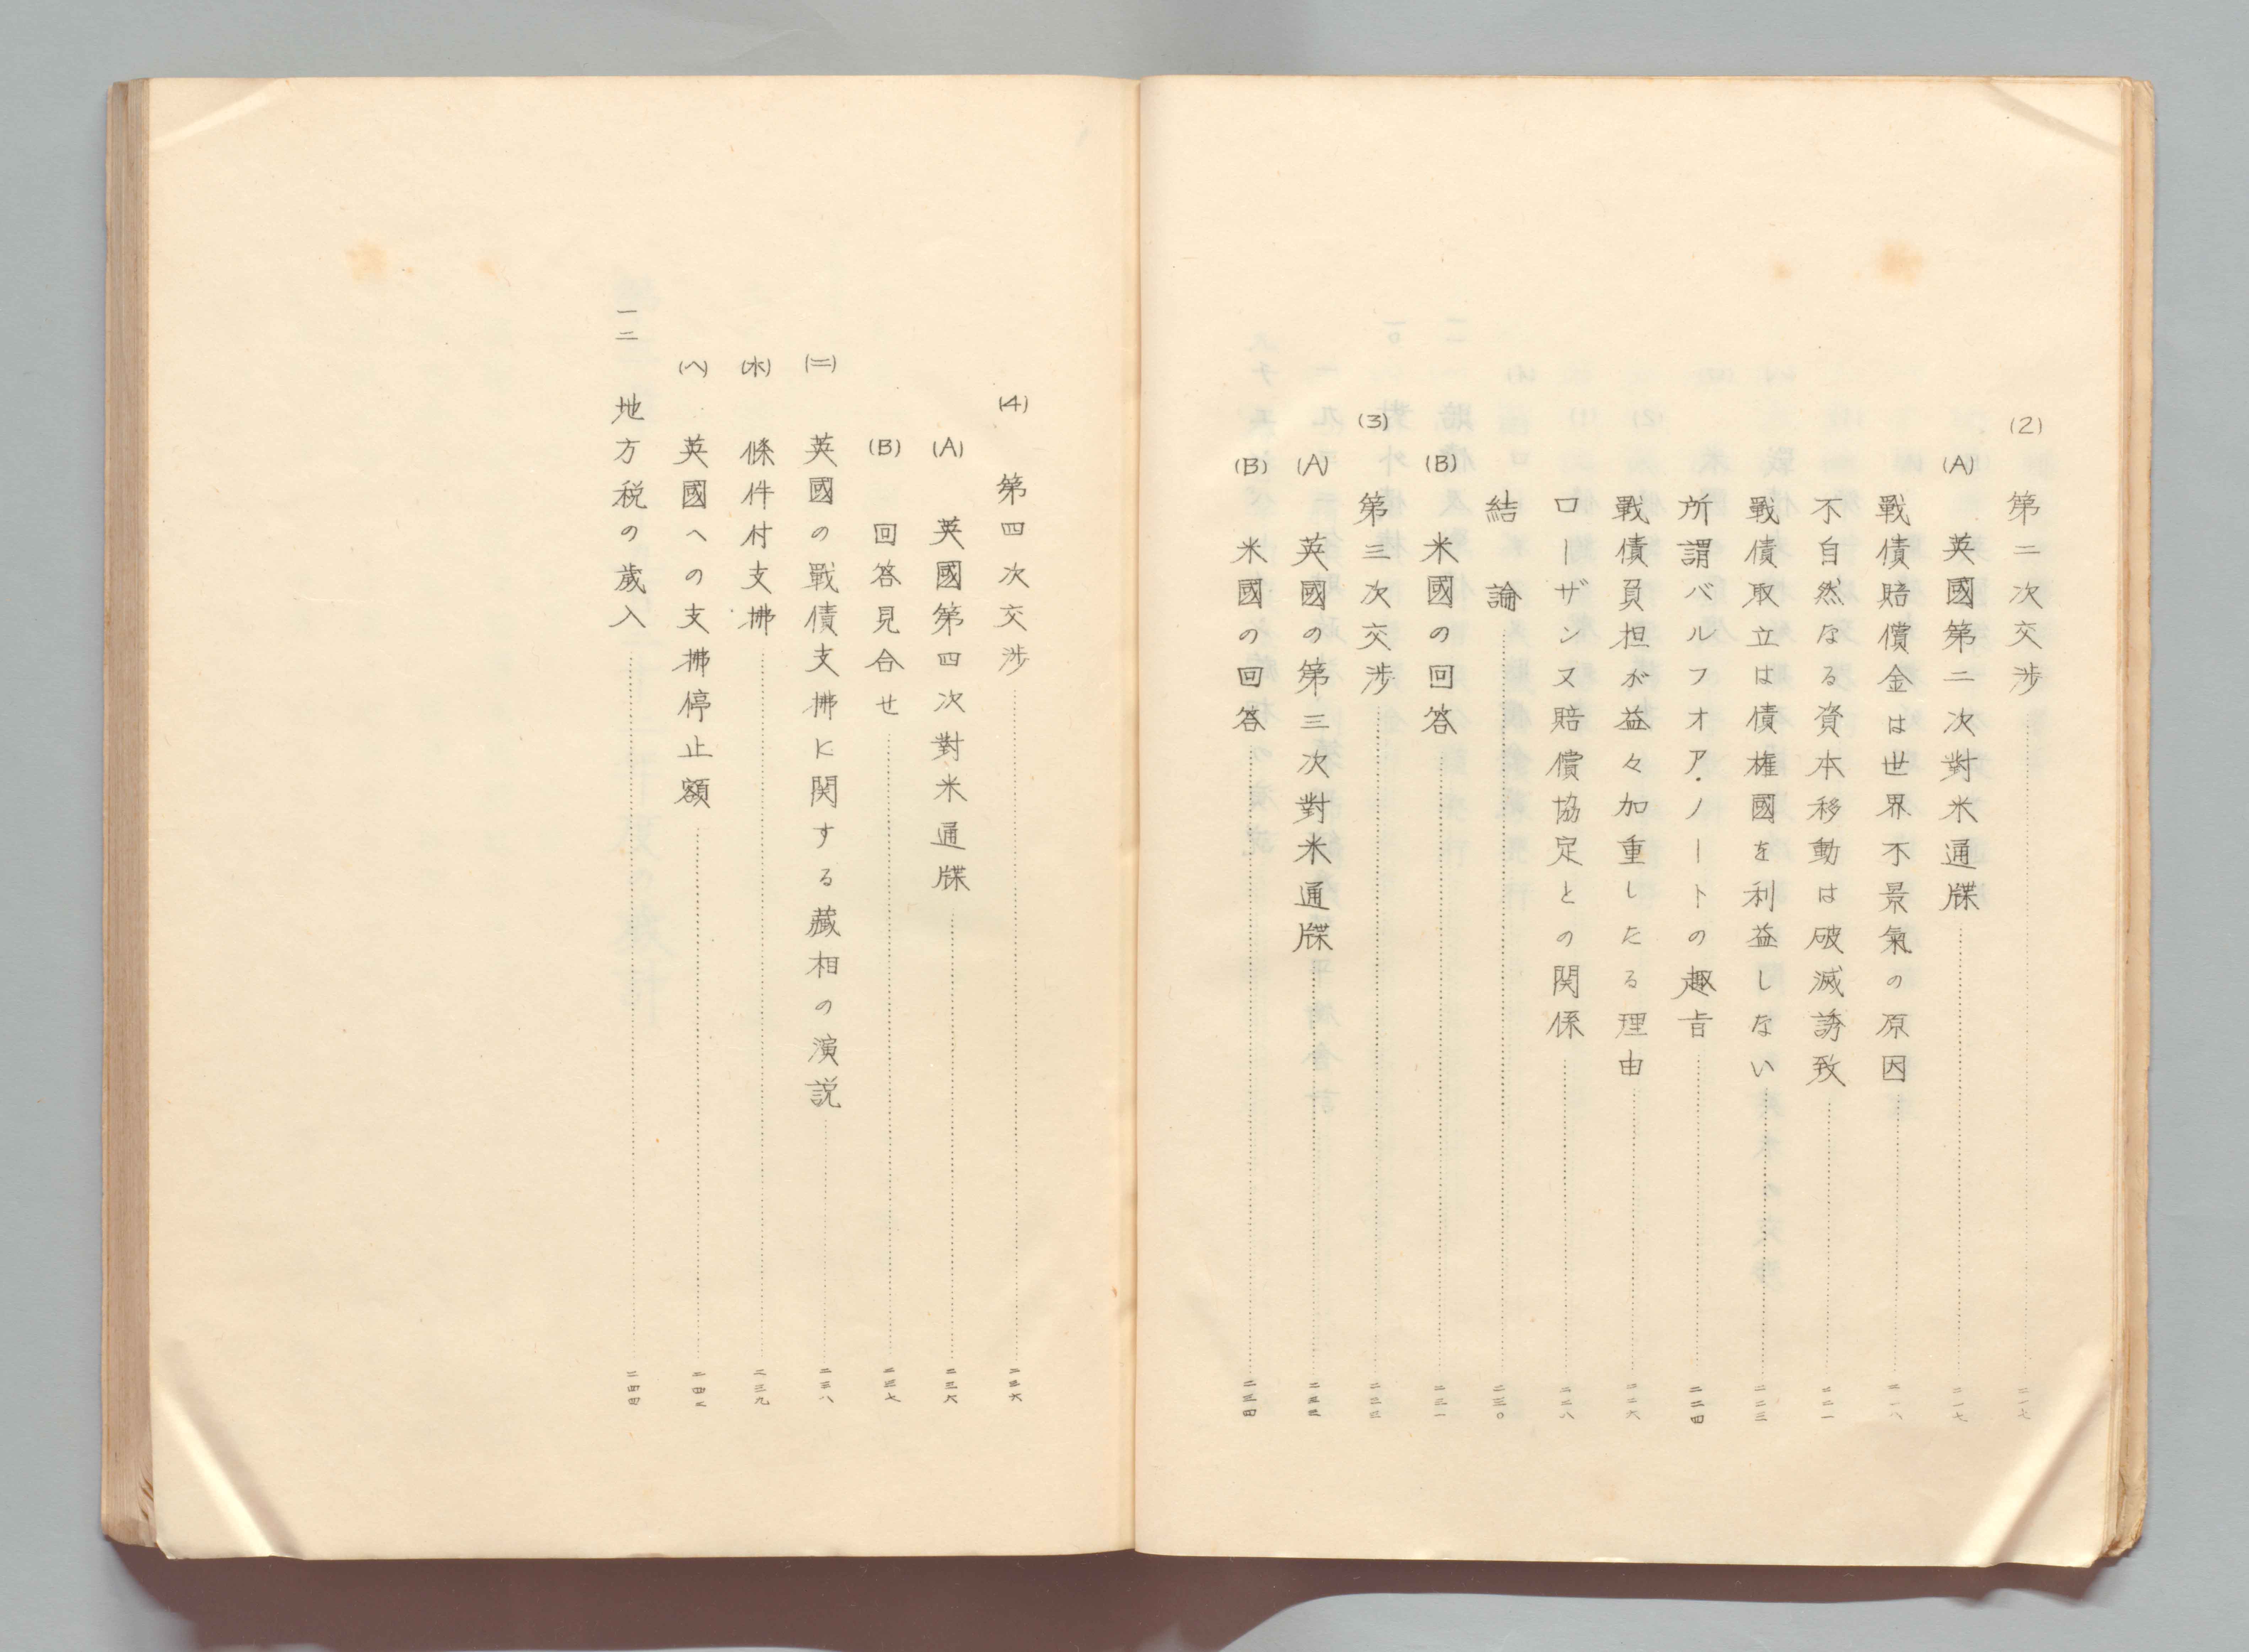 (2) 第二次交渉……二一七
(A) 英國第二次對米通牒……二一七
戰債賠償金は世界不景氣の原因……二一八
不自然なる資本移動は破滅誘致……二二一
戰債取立は債権國を利益しない……二二三
所謂バルフオア・ノートの趣旨……二二四
戰債負担が益々加重したる理由……二二六
ローザンヌ賠償協定との関係……二二八
結論……二三〇
(B) 米國の回答……二三一
(3) 第三次交渉……二三三
(A) 英國の第三次對米通牒……二三三
(B) 米國の回答……二三四
(4) 第四次交渉……二三六
(A) 英國第四次對米通牒……二三六
(B) 回答見合せ……二三七
(ニ) 英國の戰債支拂に関する藏相の演説……二三八
(ホ) 條件付支拂……二三九
(ヘ) 英國への支拂停止額……
一二 地方税の歳入……二四四